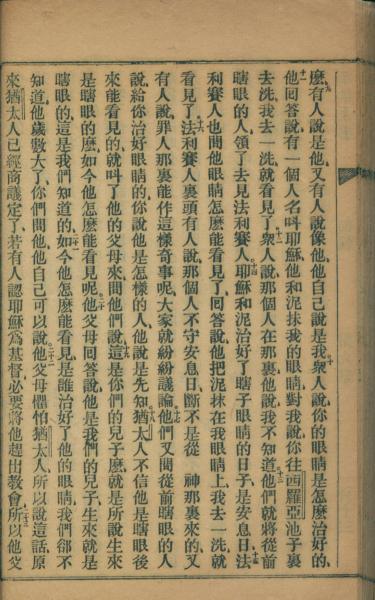 麽有人說是他又有人說像他他自己說是我衆人說你的眼睛是怎麽治好的
他回答說有一個人名呌耶穌他和泥抹我的眼睛對我說你往西羅亞池子裏
去洗我去一洗就看見了衆人說那個人在那裏他說我不知道他們就將從前
瞎眼的人領了去見法利賽人耶穌和泥治好了瞎子眼睛的日子是安息日法
利賽人也問他眼睛怎麽能看見了回答說他把泥抹在我眼睛上我去一洗就
看見了法利賽人裏頭有人說那個人不守安息日斷不是從 神那裏來的又
有人說罪人那裏能作這樣奇事呢大家就紛紛議論他們又問從前瞎眼的人
說給你治好眼睛的你說他是怎樣的人他說是先知猶太人不信他是瞎眼後
來能看見的就呌了他的父母來問他們說這是你們的兒子麽就是所說生來
是瞎眼的麽如今他怎麽能看見呢他父母回答說他是我們的兒子生來就是
瞎眼的這是我們知道的如今他怎麽能看見是誰治好了他的眼睛我們卻不
知道他歲數大了你們問他他自己可以說他父母懼怕猶太人所以說這話原
來猶太人已經商議定了若有人認耶穌爲基督必要將他趕出敎會所以他父